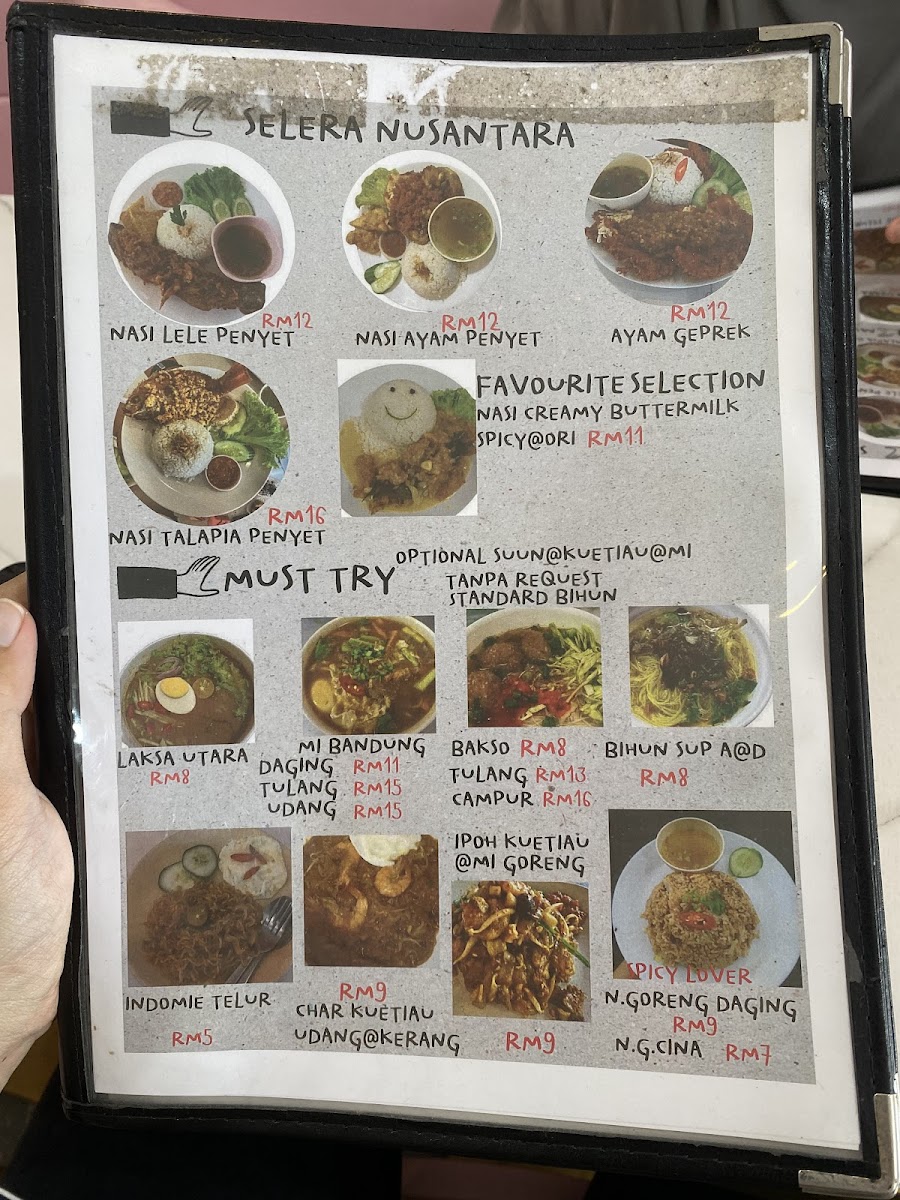 SELERA NUSANTARA
RM12
NASI LELE PENYET
RM12
NASI AYAM PENYET
RM12
AYAM GEPREK
RM16
NASI TALAPIA PENYET
FAVOURITE SELECTION
NASI CREAMY BUTTERMILK
SPICY@ORI RM11
MUST TRY
OPTIONAL SUUN@KUETIAU@MI
TANPA REQUEST
STANDARD BIHUN
LAKSA UTARA
RM8
MI BANDUNG
DAGING RM11
TULANG RM15
UDANG RM15
BAKSO RM8
TULANG RM13
CAMPUR RM16
BIHUN SUP A@D
RM8
INDOMIE TELUR
RM5
RM9
CHAR KUETIAU
UDANG@KERANG
IPOH KUETIAU
@MI GORENG
RM9
SPICY LOVER
N.GORENG DAGING
RM9
N.G.CINA RM7